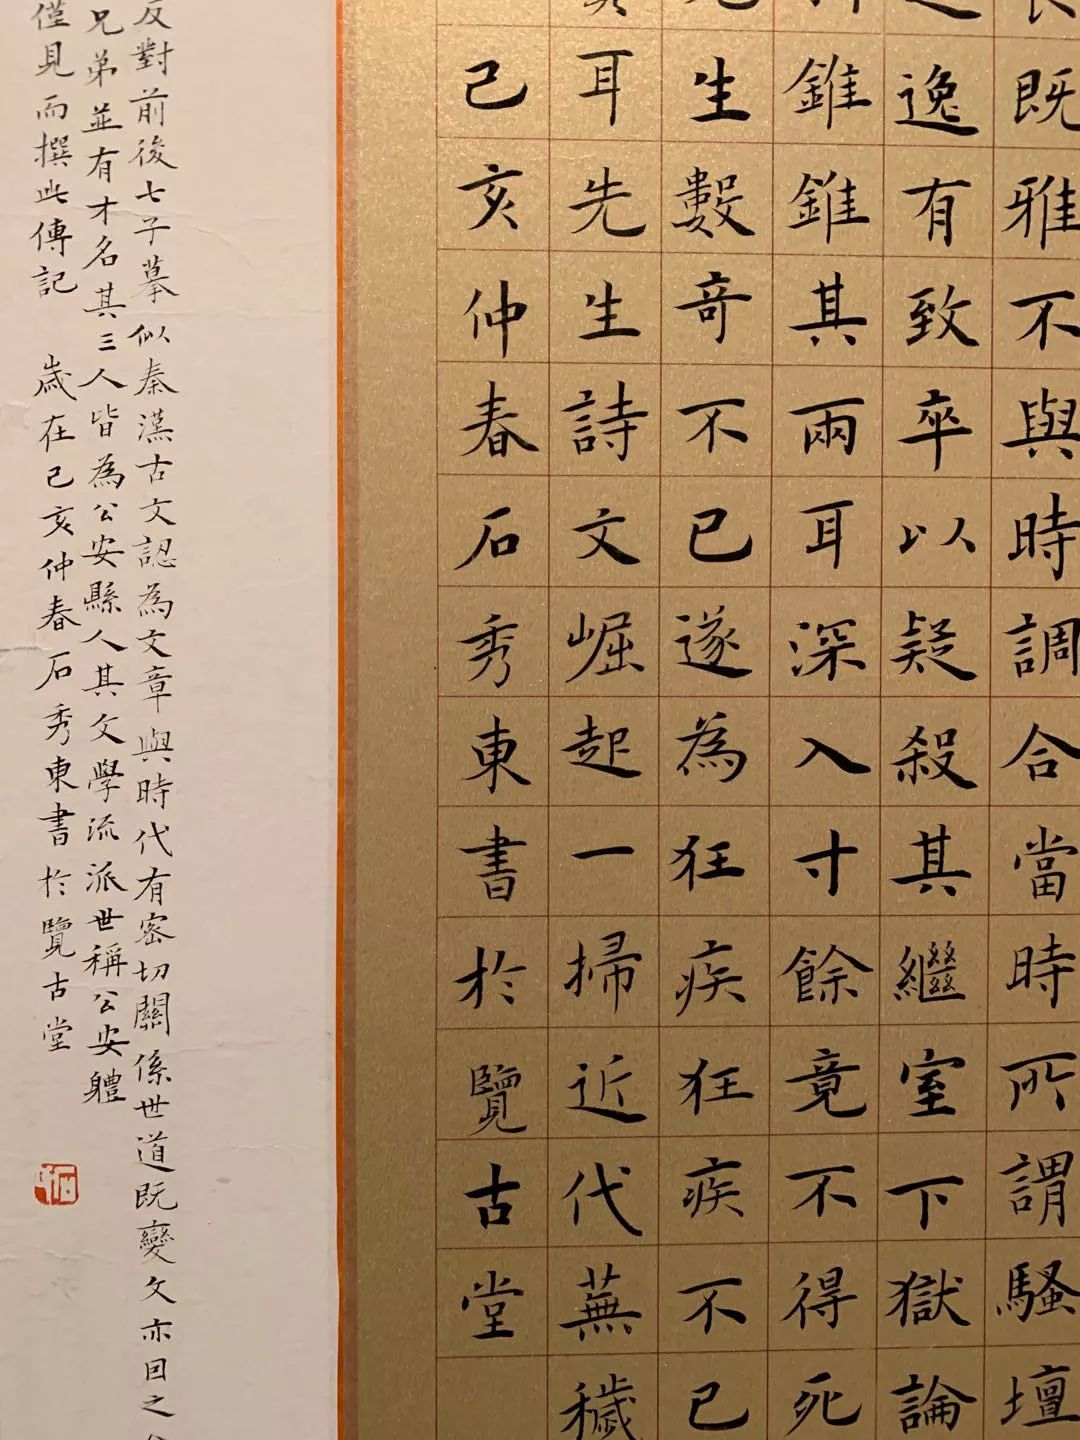 既雅不與時調合當時所謂騷壇
逸有致卒以疑殺其繼室下獄論
錐錐其兩耳深入寸餘竟不得死
生數奇不已遂為狂疾狂疾不已
耳先生詩文崛起一掃近代蕪穢
己亥仲春石秀東書於覽古堂
反對前後七子摹似秦漢古文認為文章與時代有密切關係世道既變文亦因之
兄弟並有才名其三人皆為公安縣人其文學流派世稱公安體
僅見而撰此傳記 歲在己亥仲春石秀東書於覽古堂